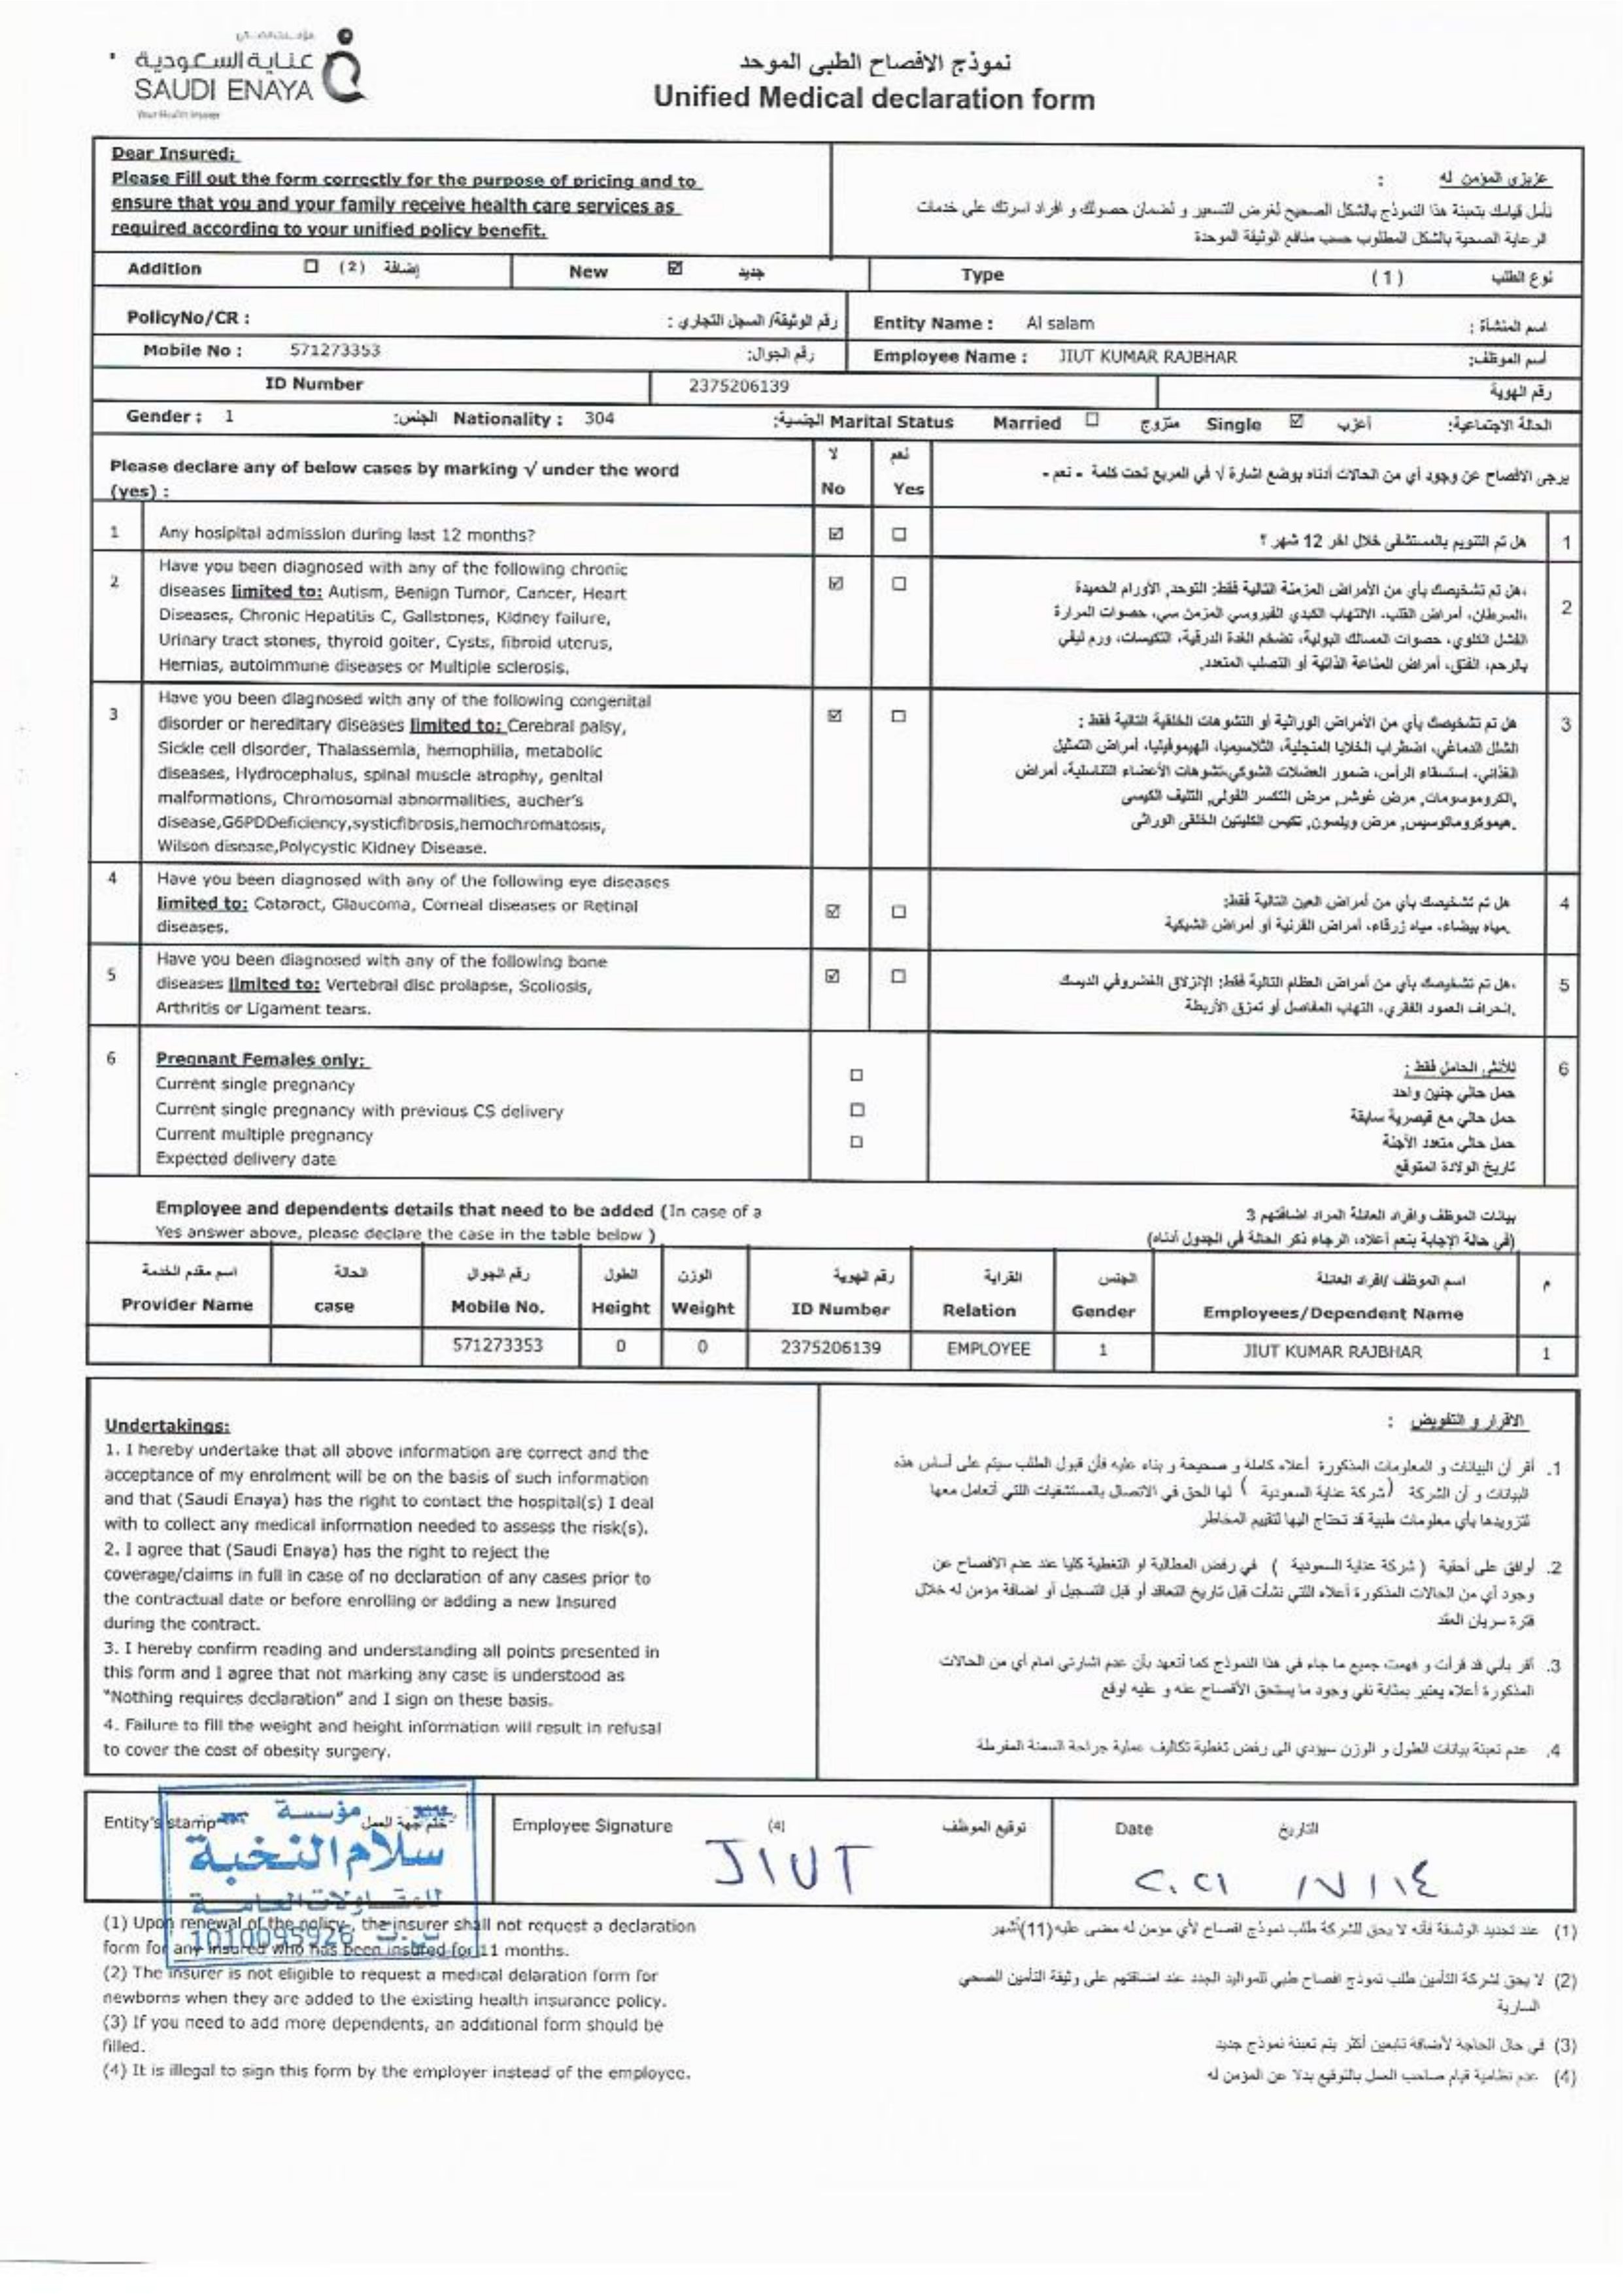 عناية السعودية
SAUDI ENAYA
Your Health Insurer
نموذج الافصاح الطبي الموحد
Unified Medical declaration form
Dear Insured:
Please Fill out the form correctly for the purpose of pricing and to
ensure that you and your family receive health care services as
required according to your unified policy benefit.
عزيزي المؤمن له :
نأمل قيامك بتعبئة هذا النموذج بالشكل الصحيح لغرض التسعير و لضمان حصولك و افراد اسرتك على خدمات
الرعاية الصحية بالشكل المطلوب حسب منافع الوثيقة الموحدة
Addition ☐ (2) إضافة New ☑ جديد Type (1) نوع الطلب
PolicyNo/CR : رقم الوثيقة/ السجل التجاري : Entity Name : Al salam اسم المنشأة :
Mobile No : 571273353 رقم الجوال: Employee Name : JIUT KUMAR RAJBHAR أسم الموظف:
ID Number 2375206139 رقم الهوية
Gender : 1 الجنس: Nationality : 304 الجنسية: Marital Status Married ☐ متزوج Single ☑ أعزب الحالة الاجتماعية:
Please declare any of below cases by marking √ under the word
(yes) :
لا نعم
No Yes
يرجى الافصاح عن وجود أي من الحالات أدناه بوضع اشارة √ في المربع تحت كلمة - نعم -
1 Any hosipital admission during last 12 months? ☑ ☐ هل تم التنويم بالمستشفى خلال اخر 12 شهر ؟ 1
2 Have you been diagnosed with any of the following chronic
diseases limited to: Autism, Benign Tumor, Cancer, Heart
Diseases, Chronic Hepatitis C, Gallstones, Kidney failure,
Urinary tract stones, thyroid goiter, Cysts, fibroid uterus,
Hernias, autoimmune diseases or Multiple sclerosis.
☑ ☐
هل تم تشخيصك بأي من الأمراض المزمنة التالية فقط: التوحد, الأورام الحميدة، 2
السرطان، أمراض القلب، الالتهاب الكبدي الفيروسي المزمن سي، حصوات المرارة،
الفشل الكلوي، حصوات المسالك البولية، تضخم الغدة الدرقية، التكيسات، ورم ليفي
بالرحم، الفتق، أمراض المناعة الذاتية أو التصلب المتعدد.
3 Have you been diagnosed with any of the following congenital
disorder or hereditary diseases limited to: Cerebral palsy,
Sickle cell disorder, Thalassemia, hemophilia, metabolic
diseases, Hydrocephalus, spinal muscle atrophy, genital
malformations, Chromosomal abnormalities, aucher's
disease,G6PDDeficiency,systicfibrosis,hemochromatosis,
Wilson disease,Polycystic Kidney Disease.
☑ ☐
هل تم تشخيصك بأي من الأمراض الوراثية أو التشوهات الخلقية التالية فقط : 3
الشلل الدماغي، اضطراب الخلايا المنجلية، الثلاسيميا، الهيموفيليا، أمراض التمثيل
الغذائي، استسقاء الرأس، ضمور العضلات الشوكي،تشوهات الأعضاء التناسلية، أمراض
الكروموسومات, مرض غوشر, مرض التكسر الفولي, التليف الكيسي,
هيموكروماتوسيس, مرض ويلسون, تكيس الكليتين الخلقي الوراثي.
4 Have you been diagnosed with any of the following eye diseases
limited to: Cataract, Glaucoma, Corneal diseases or Retinal
diseases.
☑ ☐
هل تم تشخيصك بأي من أمراض العين التالية فقط: 4
مياه بيضاء، مياه زرقاء، أمراض القرنية أو أمراض الشبكية.
5 Have you been diagnosed with any of the following bone
diseases limited to: Vertebral disc prolapse, Scoliosis,
Arthritis or Ligament tears.
☑ ☐
هل تم تشخيصك بأي من أمراض العظام التالية فقط: الإنزلاق الغضروفي الديسك، 5
انحراف العمود الفقري، التهاب المفاصل أو تمزق الأربطة.
6 Pregnant Females only:
Current single pregnancy ☐
Current single pregnancy with previous CS delivery ☐
Current multiple pregnancy ☐
Expected delivery date
للأنثى الحامل فقط : 6
حمل حالي جنين واحد
حمل حالي مع قيصرية سابقة
حمل حالي متعدد الأجنة
تاريخ الولادة المتوقع
Employee and dependents details that need to be added (In case of a
Yes answer above, please declare the case in the table below )
بيانات الموظف وافراد العائلة المراد اضافتهم 3
(في حالة الإجابة بنعم أعلاه، الرجاء ذكر الحالة في الجدول أدناه)
اسم مقدم الخدمة الحالة رقم الجوال الطول الوزن رقم الهوية القرابة الجنس اسم الموظف /افراد العائلة م
Provider Name case Mobile No. Height Weight ID Number Relation Gender Employees/Dependent Name
571273353 0 0 2375206139 EMPLOYEE 1 JIUT KUMAR RAJBHAR 1
Undertakings:
1. I hereby undertake that all above information are correct and the
acceptance of my enrolment will be on the basis of such information
and that (Saudi Enaya) has the right to contact the hospital(s) I deal
with to collect any medical information needed to assess the risk(s).
2. I agree that (Saudi Enaya) has the right to reject the
coverage/claims in full in case of no declaration of any cases prior to
the contractual date or before enrolling or adding a new Insured
during the contract.
3. I hereby confirm reading and understanding all points presented in
this form and I agree that not marking any case is understood as
"Nothing requires declaration" and I sign on these basis.
4. Failure to fill the weight and height information will result in refusal
to cover the cost of obesity surgery.
الاقرار و التفويض :
1. أقر أن البيانات و المعلومات المذكورة أعلاه كاملة و صحيحة و بناء عليه فأن قبول الطلب سيتم على أساس هذه
البيانات و أن الشركة (شركة عناية السعودية ) لها الحق في الاتصال بالمستشفيات اللتي أتعامل معها
لتزويدها بأي معلومات طبية قد تحتاج اليها لتقييم المخاطر
2. أوافق على أحقية ( شركة عناية السعودية ) في رفض المطالبة او التغطية كليا عند عدم الافصاح عن
وجود أي من الحالات المذكورة أعلاه اللتي نشأت قبل تاريخ التعاقد أو قبل التسجيل أو اضافة مؤمن له خلال
فترة سريان العقد
3. أقر بأني قد قرأت و فهمت جميع ما جاء في هذا النموذج كما أتعهد بأن عدم اشارتي امام أي من الحالات
المذكورة أعلاه يعتبر بمثابة نفي وجود ما يستحق الأفصاح عنه و عليه اوقع
4. عدم تعبئة بيانات الطول و الوزن سيؤدي الى رفض تغطية تكاليف عملية جراحة السمنة المفرطة
Entity's stamp ختم جهة العمل
مؤسسة
سلام النخبة
للمقاولات العامة
1010095926
Employee Signature (4) توقيع الموظف
JIUT
Date التاريخ
٢٠٢١ ١٢/١٤
(1) Upon renewal of the policy, the insurer shall not request a declaration
form for any insured who has been insured for 11 months.
(2) The insurer is not eligible to request a medical delaration form for
newborns when they are added to the existing health insurance policy.
(3) If you need to add more dependents, an additional form should be
filled.
(4) It is illegal to sign this form by the employer instead of the employee.
(1) عند تجديد الوثيقة فأنه لا يحق للشركة طلب نموذج افصاح لأي مؤمن له مضى عليه (11)أشهر
(2) لا يحق لشركة التأمين طلب نموذج افصاح طبي للمواليد الجدد عند اضافتهم على وثيقة التأمين الصحي
السارية
(3) في حال الحاجه لأضافة تابعين أكثر يتم تعبئة نموذج جديد
(4) عدم نظامية قيام صاحب العمل بالتوقيع بدلا عن المؤمن له